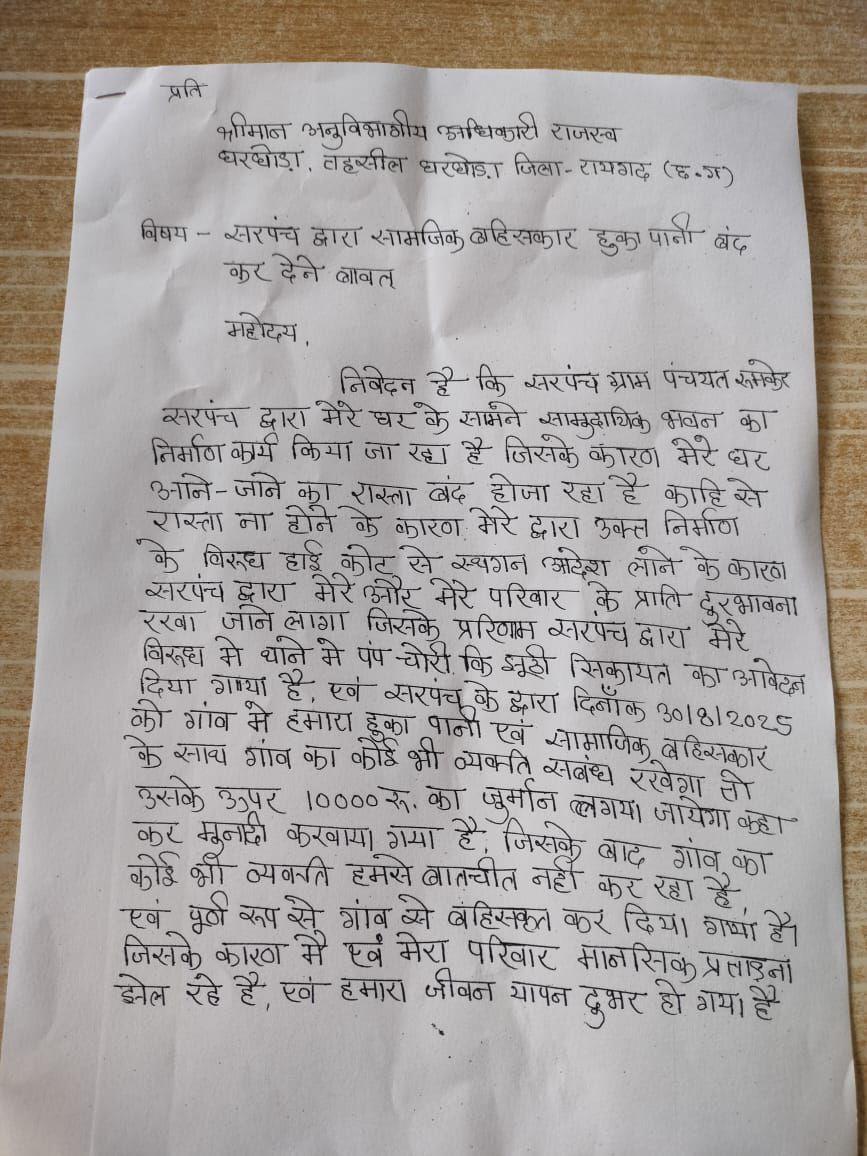 प्रति
श्रीमान अनुविभागीय अधिकारी राजस्व
घरघोड़ा, तहसील घरघोड़ा जिला - रायगढ (छ.ग)
विषय - सरपंच द्वारा सामजिक बहिसकार हुका पानी बंद
कर देने बावत्
महोदय,
निवेदन है कि सरपंच ग्राम पंचयत रूमकेर
सरपंच द्वारा मेरे घर के सामने सामुदायिक भवन का
निर्माण कार्य किया जा रहा है जिसके कारण मेरे घर
आने-जाने का रास्ता बंद होजा रहा है काहि से
रास्ता ना होने के कारण मेरे द्वारा उक्त निर्माण
के विरूध हाई कोट से स्थगन आदेश लाने के कारण
सरपंच द्वारा मेरे और मेरे परिवार के प्राति दुरभावना
रखा जाने लागा जिसके प्ररिणाम सरपंच द्वारा मेरे
विरूध मे थाने मे पंप चोरी कि झूठी सिकायत का आवेदन
दिया गाया है, एवं सरपंच के द्वारा दिनाँक 30/8/2025
को गांव मे हमारा हुका पानी एवं सामाजिक बहिसकार
के साथ गांव का कोई भी व्यक्ति सबंध रखेगा तो
उसके ऊपर 10000 रू. का जुर्मान लगया जायेगा कहा
कर मूनादी करवाया गया है, जिसके बाद गांव का
कोई भी व्यक्ती हमसे बातचीत नही कर रहा है,
एवं पूर्ण रूप से गांव से बहिसकृत कर दिया गाया है।
जिसके कारण मै एवं मेरा परिवार मानसिक प्रताड़ना
झेल रहे है, एवं हमारा जीवन यापन दुभर हो गया है